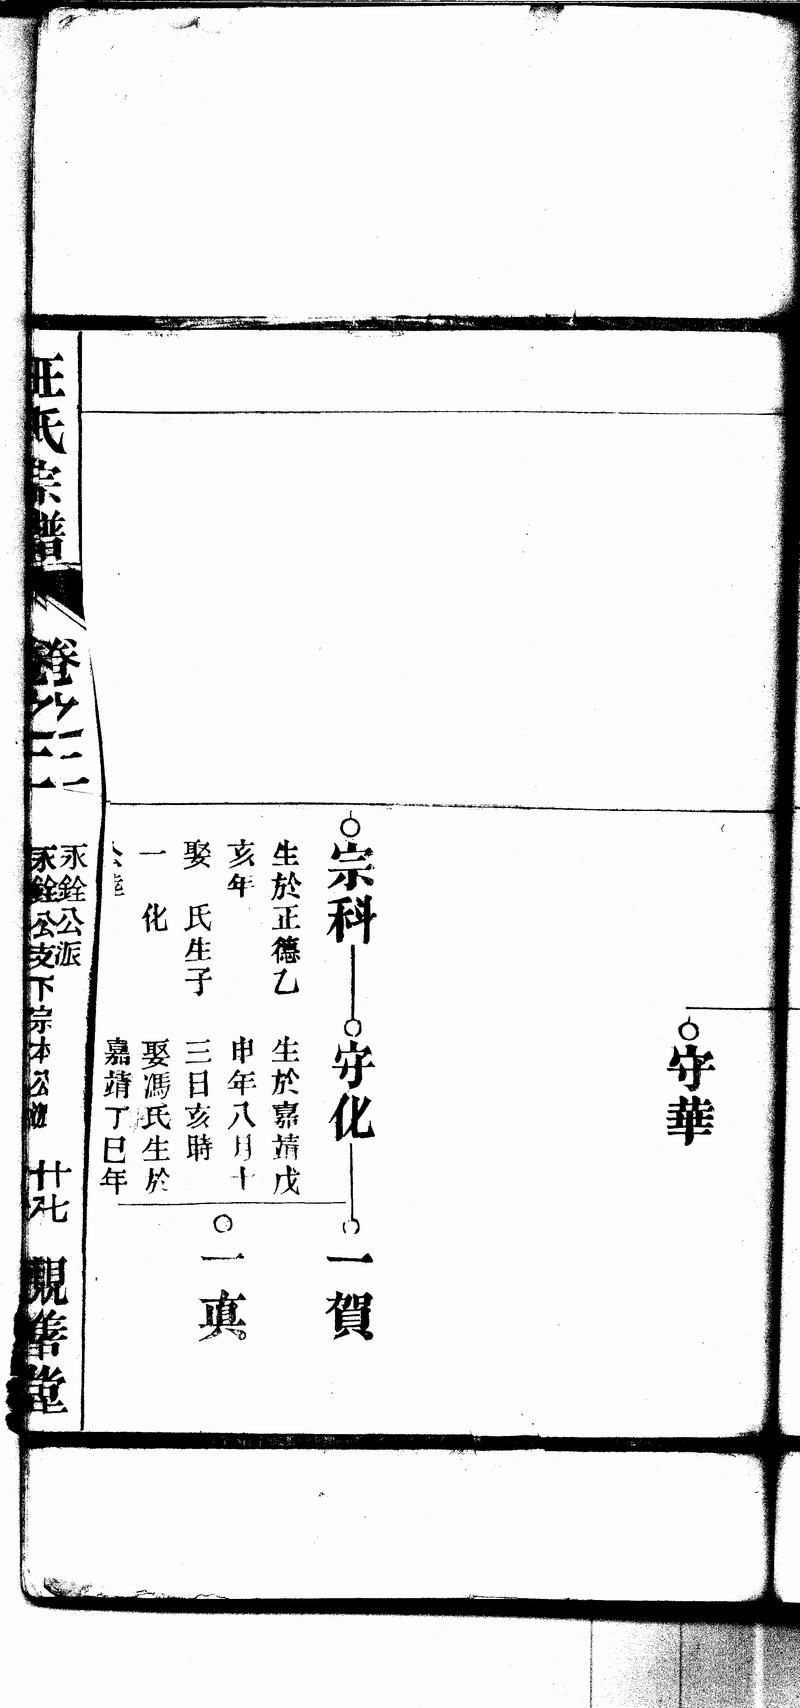 守華
宗科
生於正德乙
亥年
娶　氏生子
一　化
守化
生於嘉靖戊
申年八月十
三日亥時
娶馮氏生於
嘉靖丁巳年
一賀
一真
汪氏宗譜
卷之三
永銓公派
永銓公支下宗本公
廿七
觀善堂